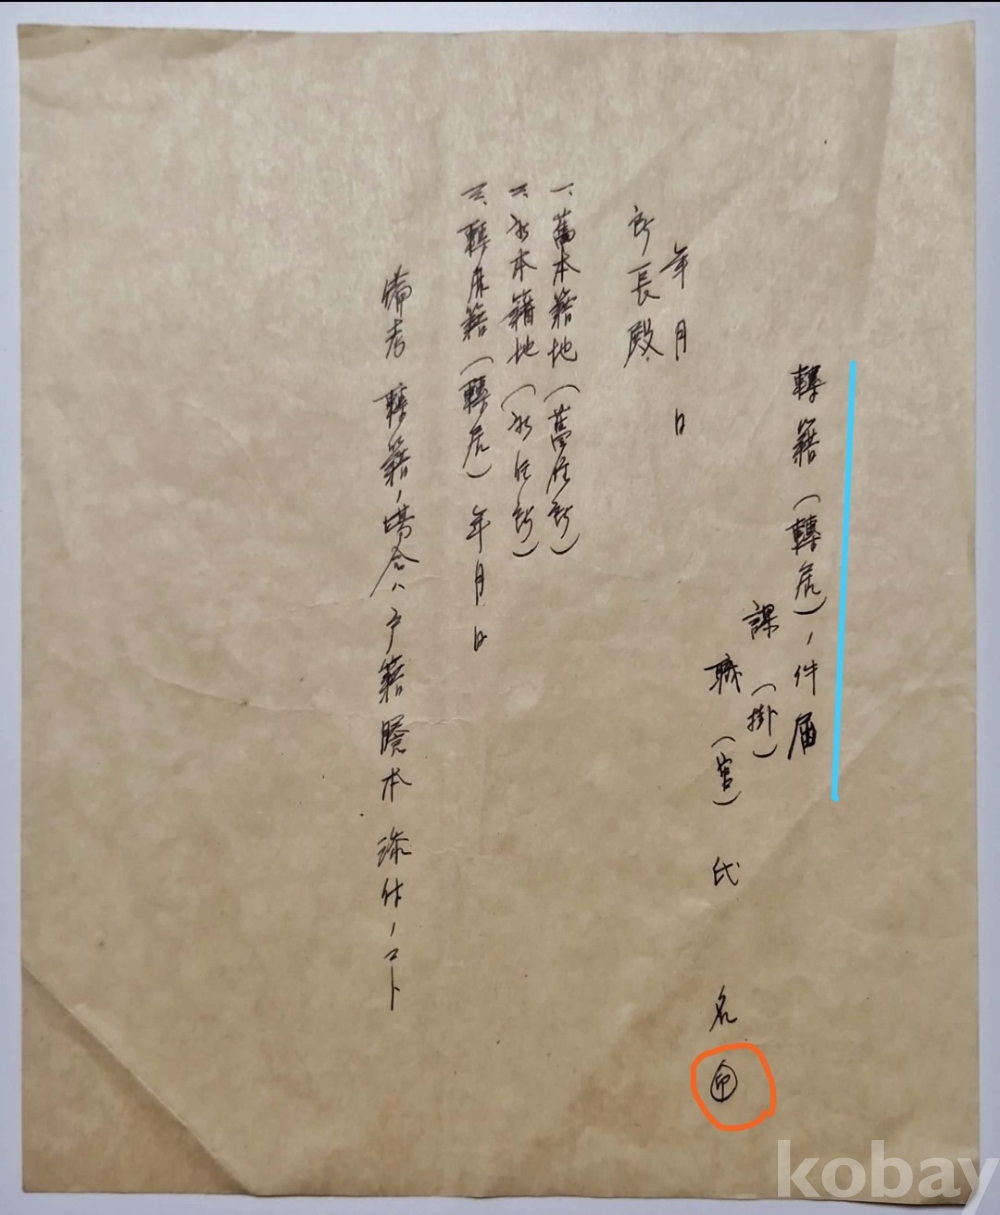 轉籍(轉居)ノ件届
課(掛)
職(官)氏名㊞
年月日
所長殿
一、舊本籍地(舊住所)
二、新本籍地(新住所)
三、轉居籍(轉居)年月日
備考 轉籍ノ場合ハ戸籍謄本添付ノコト
kobay